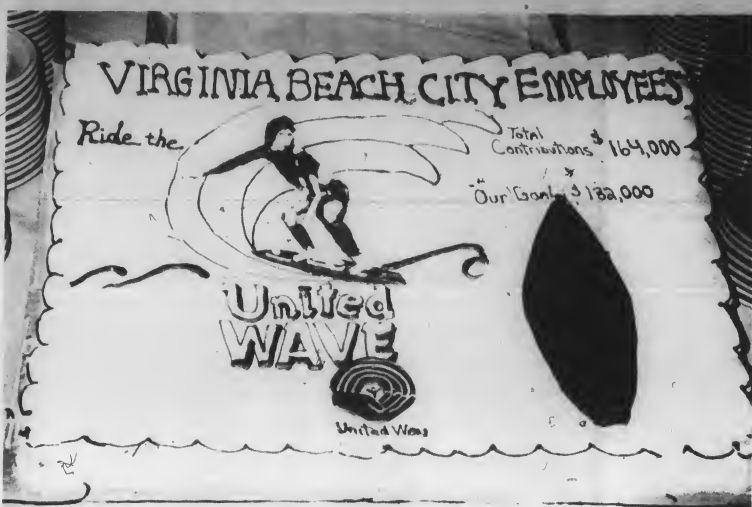 VIRGINIA BEACH CITY EMPLOYEES
Ride the
Total
Contributions $ 164,000
"Our" Goal $ 132,000
United
WAVE
United Way